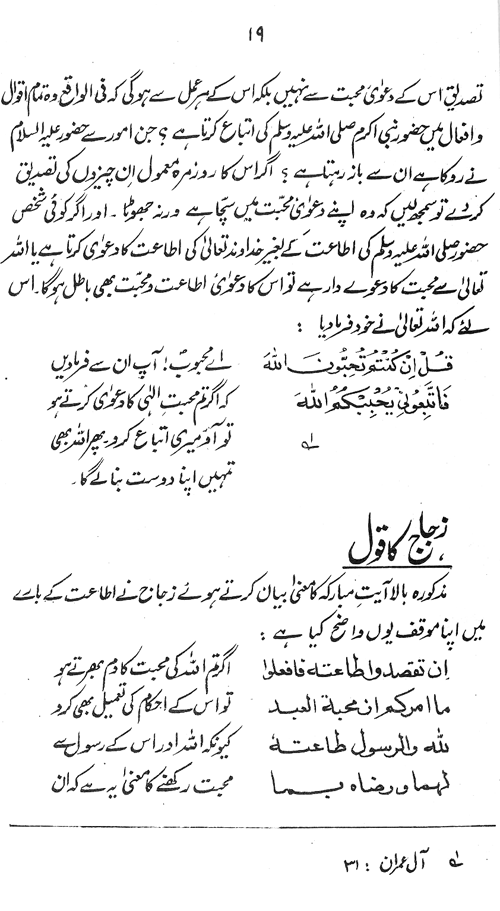 ۱۹
تصدیق اس کے دعویٰ محبت سے نہیں بلکہ اس کے ہر عمل سے ہوگی کہ فی الواقع وہ تمام اقوال
و افعال میں حضور نبی اکرم صلی اللہ علیہ وسلم کی اتباع کرتا ہے؟ جن امور سے حضور علیہ السلام
نے روکا ہے ان سے باز رہتا ہے؟ اگر اس کا روزمرہ معمول ان چیزوں کی تصدیق
کر دے تو سمجھ لیں کہ وہ اپنے دعویٰ محبت میں سچا ہے ورنہ جھوٹا۔ اور اگر کوئی شخص
حضور صلی اللہ علیہ وسلم کی اطاعت کے بغیر خداوند تعالیٰ کی اطاعت کا دعویٰ کرتا ہے یا اللہ
تعالیٰ سے محبت کا دعوے دار ہے تو اس کا دعویٰ اطاعت و محبت بھی باطل ہوگا۔ اس
لئے کہ اللہ تعالیٰ نے خود فرما دیا :
قُلْ اِنْ كُنْتُمْ تُحِبُّوْنَ اللّٰهَ
فَاتَّبِعُوْنِیْ یُحْبِبْكُمُ اللّٰهُ
؂۱
اے محبوب! آپ ان سے فرما دیں
کہ اگر تم محبت الٰہی کا دعویٰ کرتے ہو
تو آؤ میری اتباع کرو پھر اللہ بھی
تمہیں اپنا دوست بنا لے گا۔
زجاج کا قول
مذکورہ بالا آیتِ مبارکہ کا معنیٰ بیان کرتے ہوئے زجاج نے اطاعت کے بارے
میں اپنا موقف یوں واضح کیا ہے :
ان تقصدوا طاعته فافعلوا
ما امركم ان محبة العبد
لله والرسول طاعته
لهما ورضاه بما
اگر تم اللہ کی محبت کا دم بھرتے ہو
تو اس کے احکام کی تعمیل بھی کرو
کیونکہ اللہ اور اس کے رسول سے
محبت رکھنے کا معنیٰ یہ ہے کہ ان
؂۱ آل عمران : ۳۱